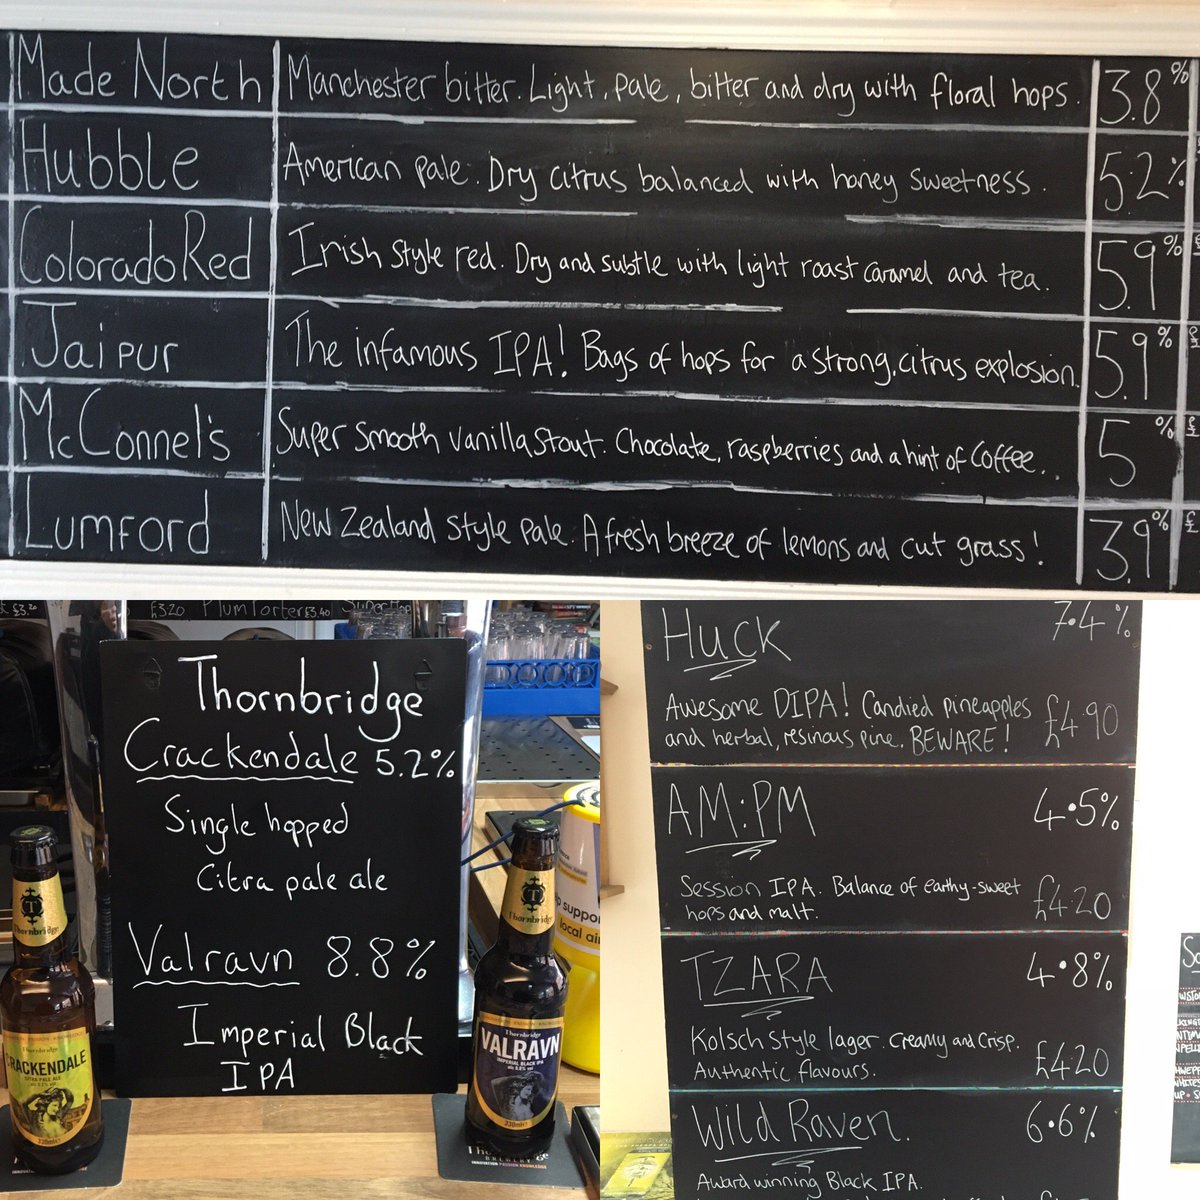 Made North Manchester bitter. Light, pale, bitter and dry with floral hops. 3.8%
Hubble American pale. Dry citrus balanced with honey sweetness. 5.2%
Colorado Red Irish style red. Dry and subtle with light roast caramel and tea. 5.9%
Jaipur The infamous IPA! Bags of hops for a strong, citrus explosion. 5.9%
McConnel's Super smooth vanilla stout. Chocolate, raspberries and a hint of coffee.. 5%
Lumford New Zealand style pale. A fresh breeze of lemons and cut grass! 3.9%
£3.20 £3.20 Plum Porter £3.40
Thornbridge
Crackendale 5.2%
Single hopped
Citra pale ale
Valravn 8.8%
Imperial Black
IPA
Thornbridge
CRACKENDALE
CITRA PALE ALE
330ml
Thornbridge
Thornbridge
VALRAVN
IMPERIAL BLACK IPA
330ml
BREWERY
INNOVATION PASSION KNOWLEDGE
support
local air
Huck 7.4%
Awesome DIPA! Candied pineapples
and herbal, resinous pine. BEWARE! £4.90
AM:PM 4.5%
Session IPA. Balance of earthy-sweet
hops and malt. £4.20
TZARA 4.8%
Kolsch style lager. Creamy and crisp.
Authentic flavours. £4.20
Wild Raven. 6.6%
Award winning Black IPA.